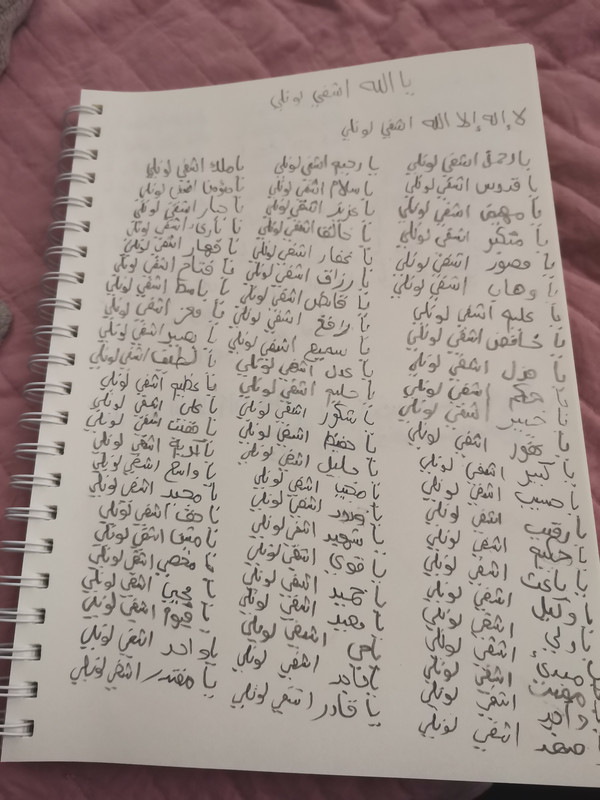 يا الله اشفي لونلي
لا إله إلا الله اشفي لونلي
يا رحمن اشفي لونلي يا رحيم اشفي لونلي يا ملك اشفي لونلي
يا قدوس اشفي لونلي يا سلام اشفي لونلي يا مؤمن اشفي لونلي
يا مهمن اشفي لونلي يا عزيز اشفي لونلي يا جبار اشفي لونلي
يا متكبر اشفي لونلي يا خالق اشفي لونلي يا بارئ اشفي لونلي
يا مصور اشفي لونلي يا غفار اشفي لونلي يا قهار اشفي لونلي
يا وهاب اشفي لونلي يا رزاق اشفي لونلي يا فتاح اشفي لونلي
يا عليم اشفي لونلي يا قابض اشفي لونلي يا باسط اشفي لونلي
يا خافض اشفي لونلي يا رافع اشفي لونلي يا معز اشفي لونلي
يا مزل اشفي لونلي يا سميع اشفي لونلي يا بصير اشفي لونلي
يا حكم اشفي لونلي يا عدل اشفي لونلي يا لطيف اشفي لونلي
يا خبير اشفي لونلي يا حليم اشفي لونلي يا عظيم اشفي لونلي
يا غفور اشفي لونلي يا شكور اشفي لونلي يا علي اشفي لونلي
يا كبير اشفي لونلي يا حفيظ اشفي لونلي يا مقيت اشفي لونلي
يا حسيب اشفي لونلي يا جليل اشفي لونلي يا كريم اشفي لونلي
يا رقيب اشفي لونلي يا مجيب اشفي لونلي يا واسع اشفي لونلي
يا حكيم اشفي لونلي يا ودود اشفي لونلي يا مجيد اشفي لونلي
يا باعث اشفي لونلي يا شهيد اشفي لونلي يا حق اشفي لونلي
يا وكيل اشفي لونلي يا قوي اشفي لونلي يا متين اشفي لونلي
يا ولي اشفي لونلي يا حميد اشفي لونلي يا محصي اشفي لونلي
مبدئ اشفي لونلي يا معيد اشفي لونلي يا محيي اشفي لونلي
مميت اشفي لونلي يا حي اشفي لونلي يا قيوم اشفي لونلي
واجد اشفي لونلي يا ماجد اشفي لونلي يا واحد اشفي لونلي
صمد اشفي لونلي يا قادر اشفي لونلي يا مقتدر اشفي لونلي